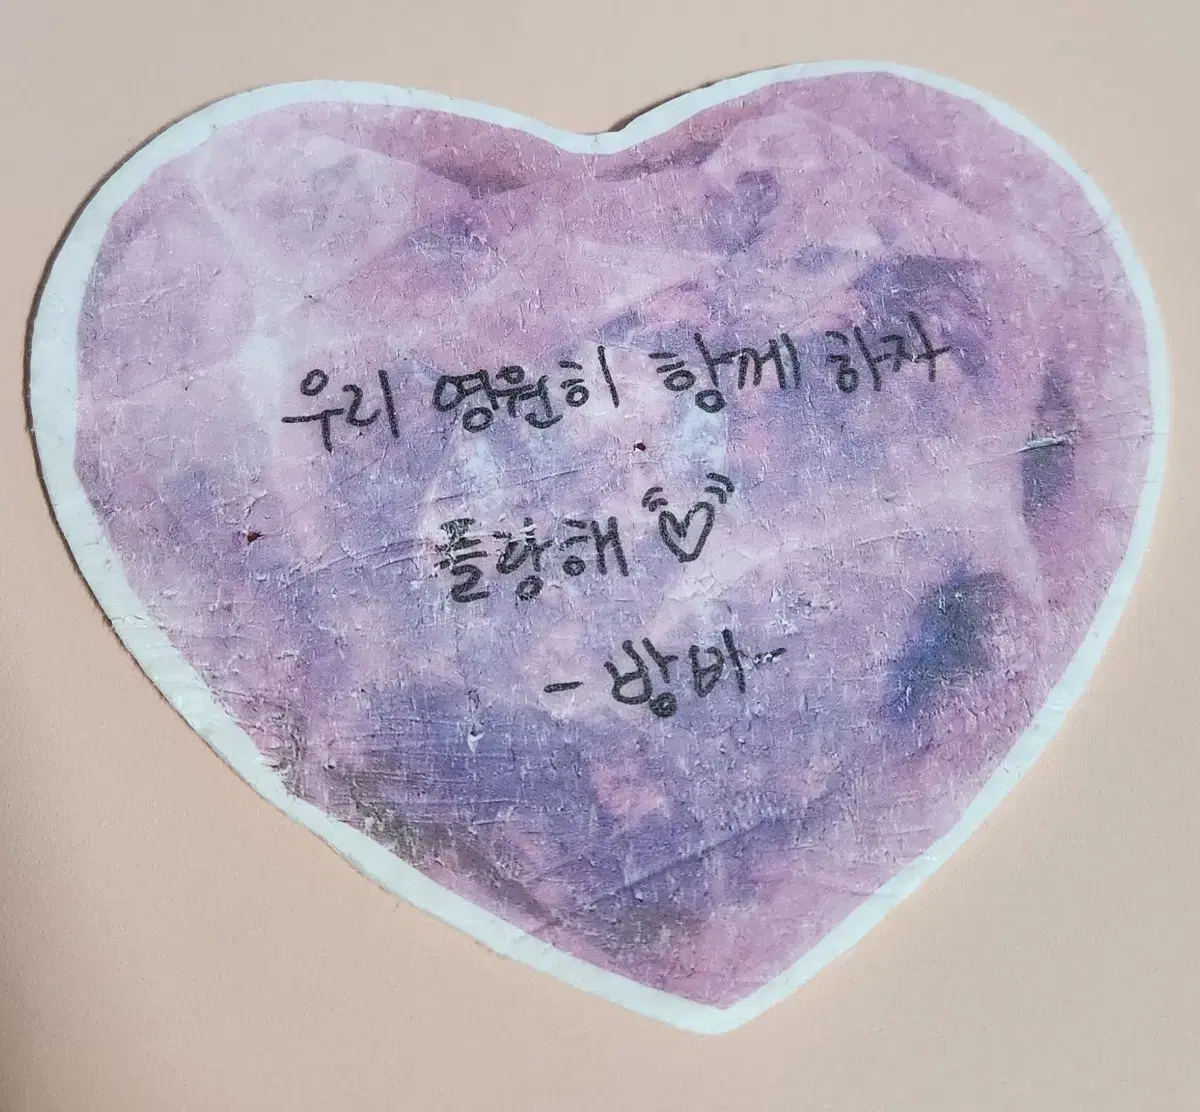 우리 영원히 함께 하자
플랑해 ♡
- 방비 -